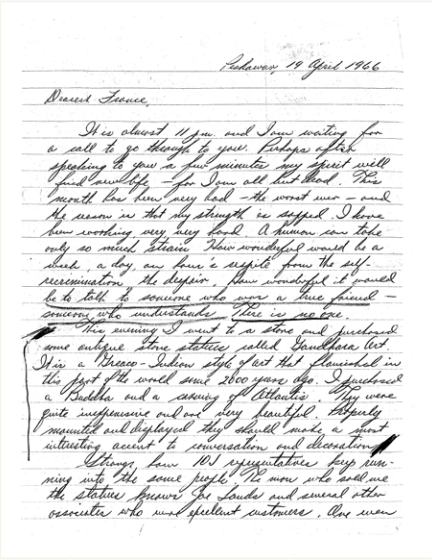 Peshawar, 19 April 1966
Dearest France,
It is almost 11 p.m. and I am waiting for
a call to go through to you. Perhaps after
speaking to you a few minutes my spirit will
find new life – for I am all but dead. This
month has been very bad – the worst ever – and
the reason is that my strength is sapped. I have
been working very, very hard. A human can take
only so much strain. How wonderful would be a
week, a day, an hour's respite from the self-
recrimination, the despair. How wonderful it would
be to talk to someone who was a true friend –
someone who understands. There is no one.
This evening I went to a store and purchased
some antique stone statues called Gandhara Art.
It is a Greaco-Indian style of art that flourished in
this part of the world some 2000 years ago. I purchased
a Buddha and a carving of Atlantis. They were
quite inexpensive and are very beautiful. Properly
mounted and displayed they should make a most
interesting accent to conversation and decoration.
Strange how IOS representatives keep run-
ning into the same people. The man who sold me
the statues knows Joe Sands and several other
associates who were excellent customers. One man